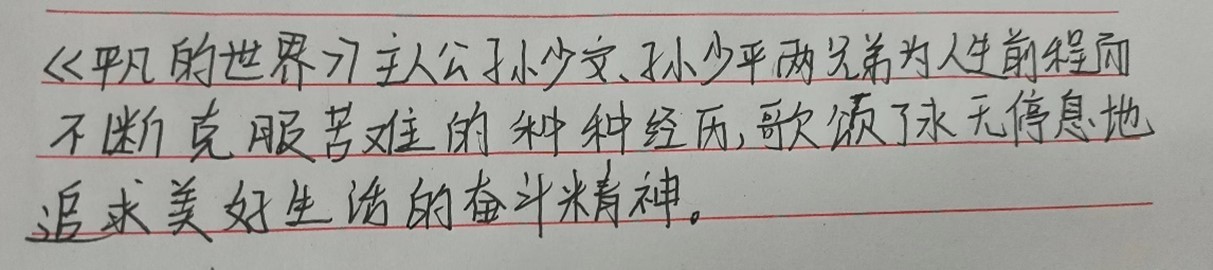 《平凡的世界》主人公孙少文、孙少平两兄弟为人生前程而
不断克服苦难的种种经历,歌颂了永无停息地
追求美好生活的奋斗精神。